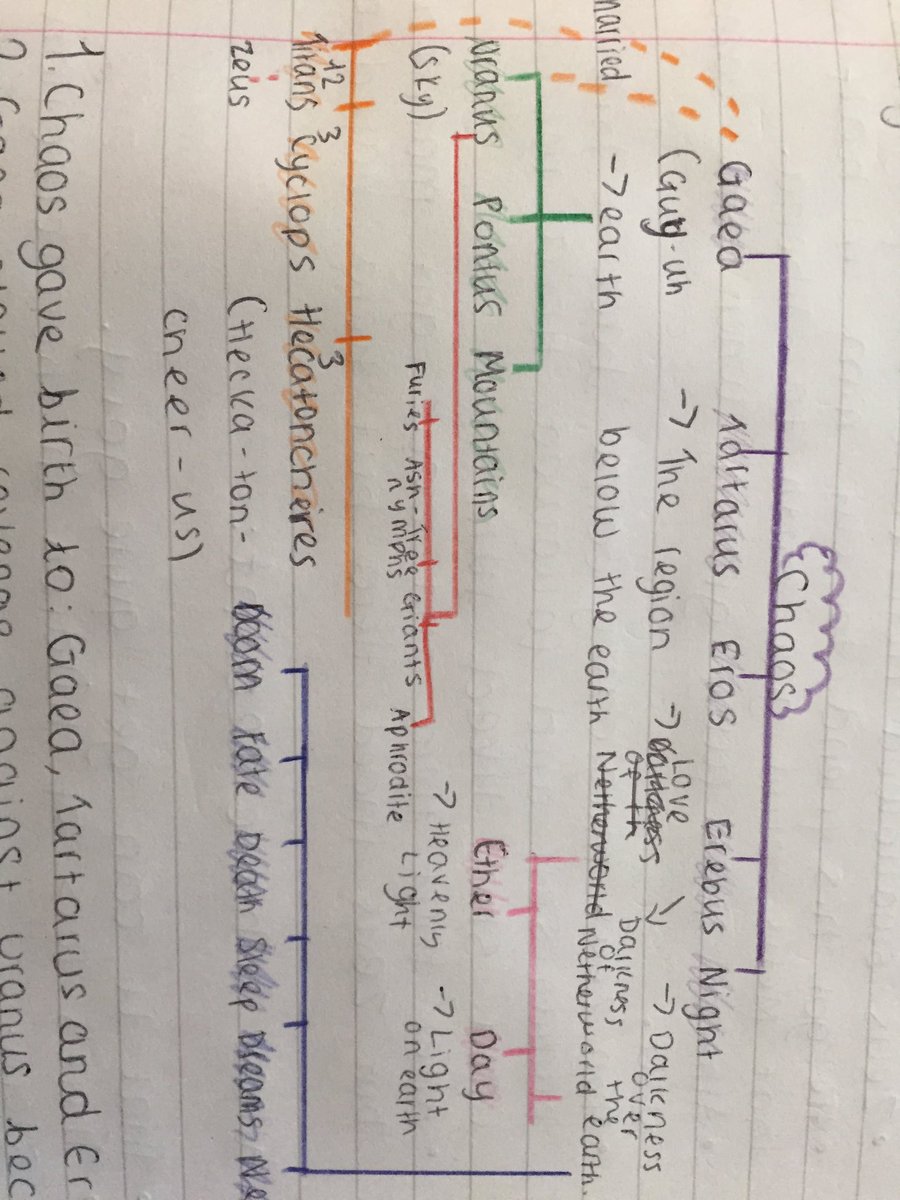 Chaos
Gaea Tartarus Eros Erebus Night
(Guy-uh → The region → Love ↘ → Darkness
married → earth below the earth Darkness of Netherworld over the earth.
Uranus Pontus Mountains Ether Day
(Sky) → Heavenly Light → Light on earth
Furies Ash-Tree nymphs Giants Aphrodite
12 3 3
Titans Cyclops Hecatoncheires
Zeus (Hecka-ton- Doom Fate Death Sleep Dreams Ne
cheer-us)
1. Chaos gave birth to: Gaea, Tartarus and Er
2. Gaea revenge against Uranus bec